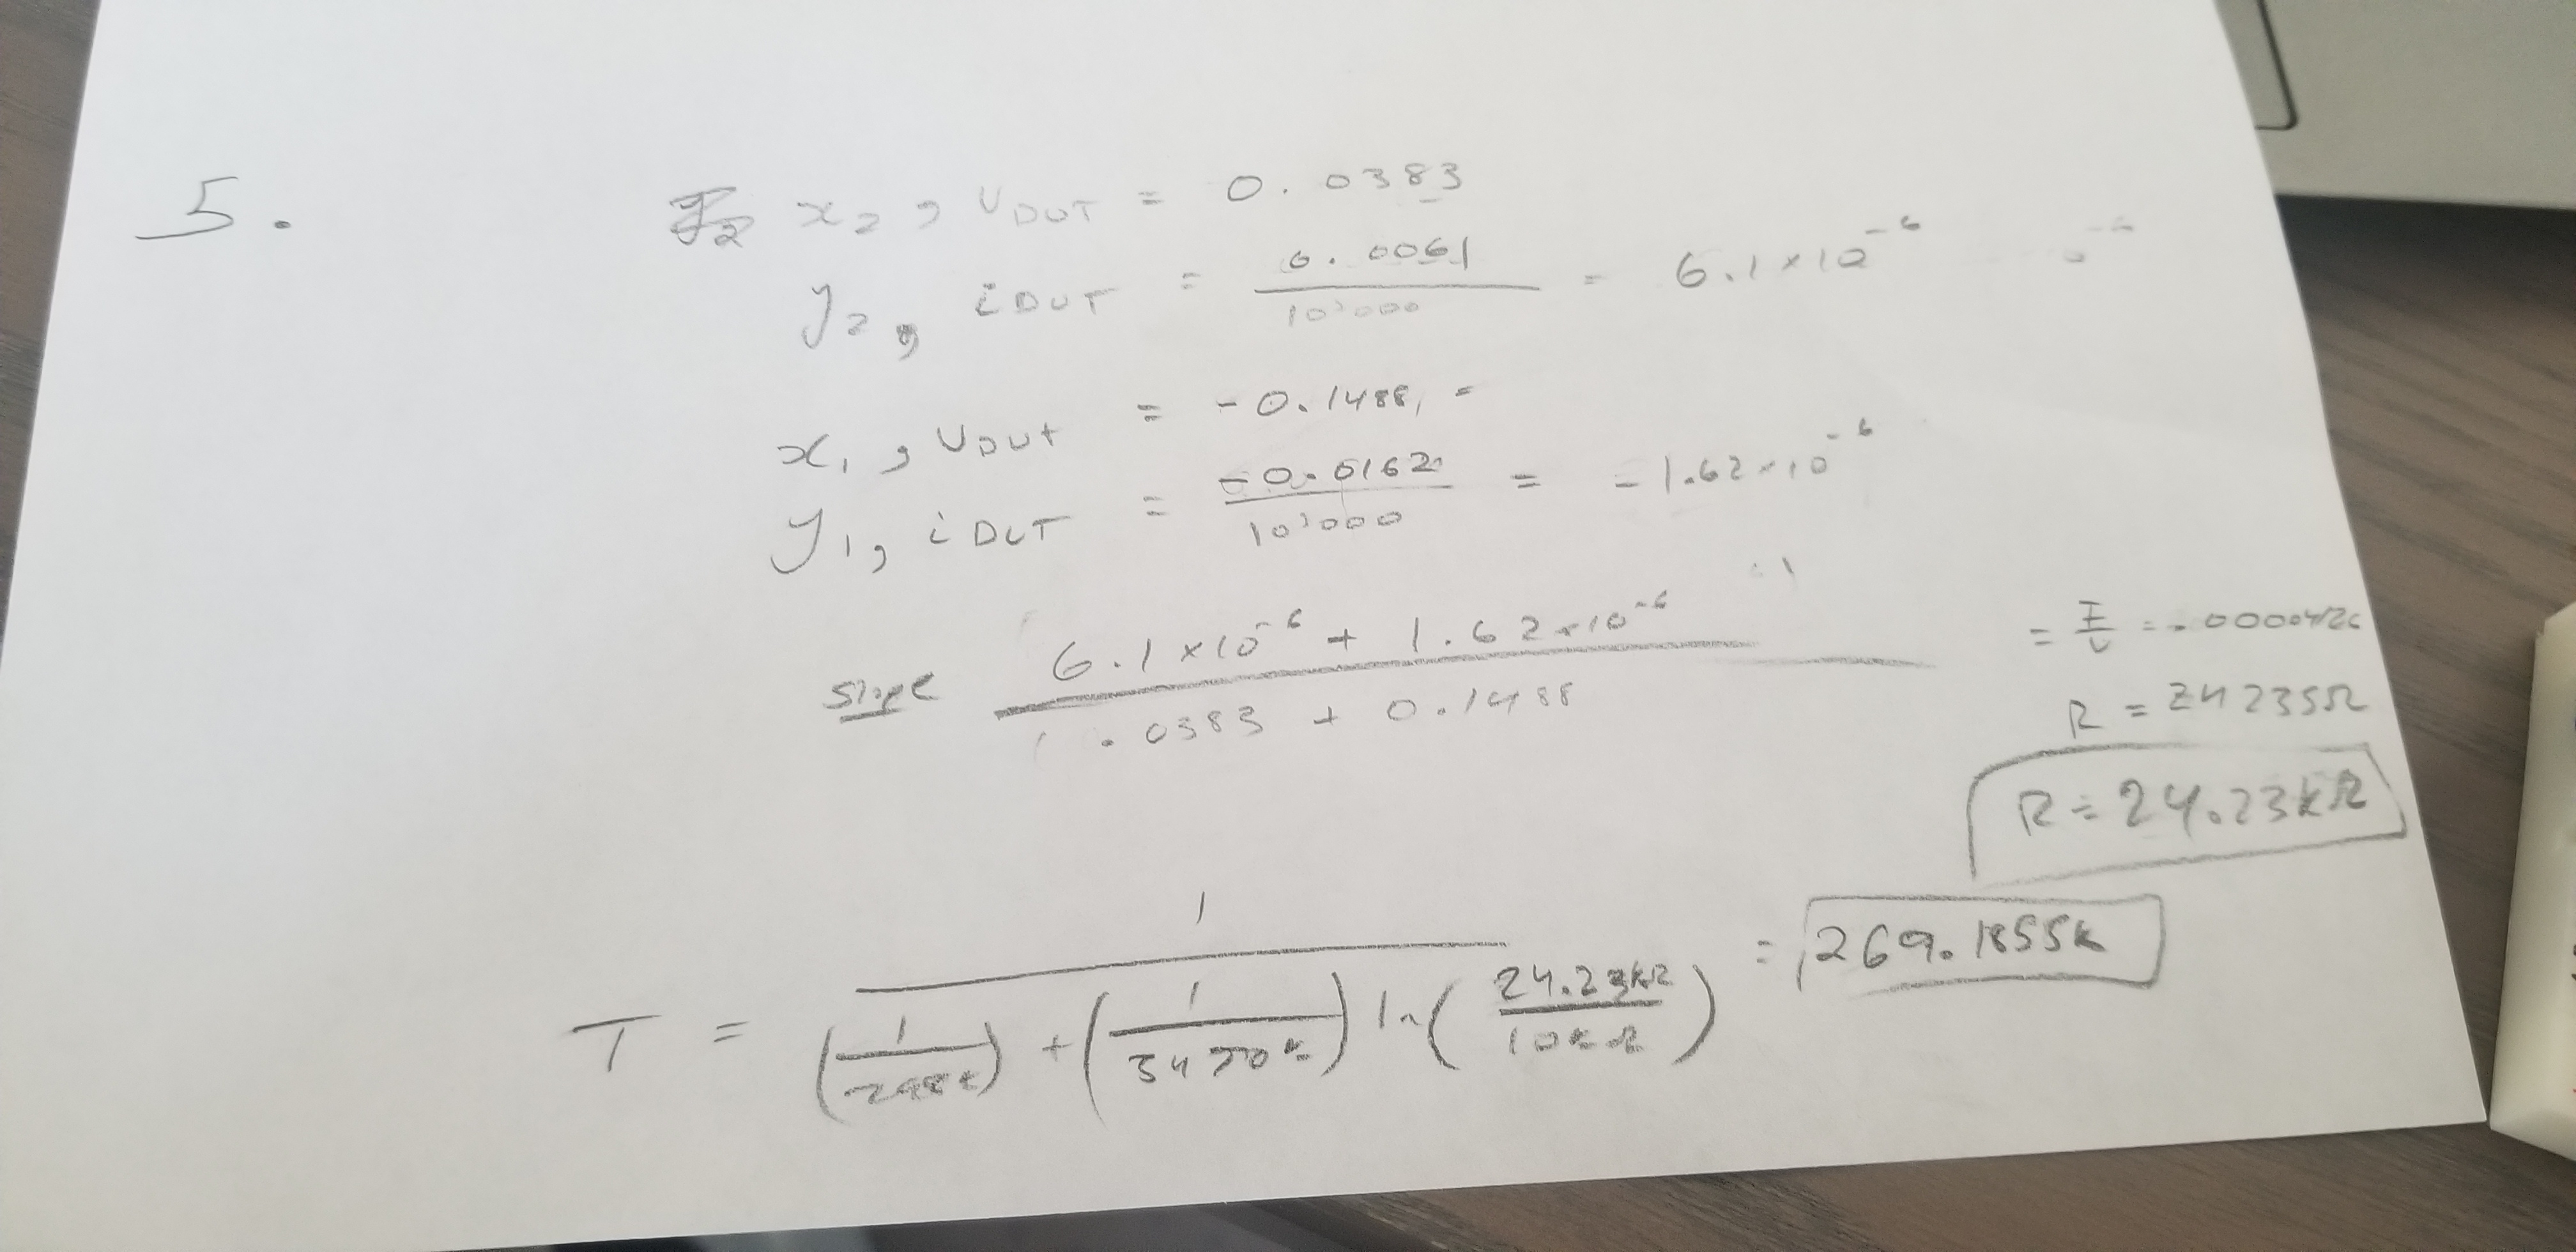 5.
x2, VDUT = 0.0383
y2, iDUT = 0.0061 / 10,000 = 6.1 × 10^-6
x1, VDUT = -0.1488
y1, iDUT = -0.0162 / 10,000 = = 1.62 × 10^-6
slope 6.1 × 10^-6 + 1.62 × 10^-6 / .0383 + 0.1488 = I/V = .0000412
R = 24235Ω
R = 24.23kΩ
T = 1 / (1/298K) + (1/3470K) ln(24.23kΩ/10kΩ) = 269.1855K